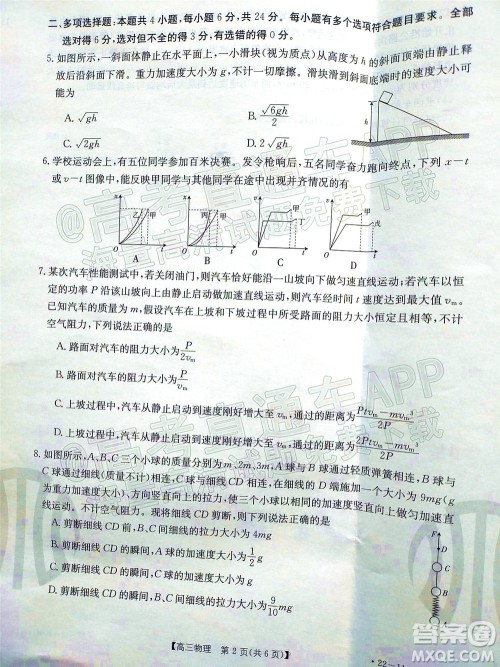 二、多项选择题:本题共 4 小题,每小题 6 分,共 24 分。每小题有多个选项符合题目要求。全部
选对得 6 分,选对但不全的得 3 分,有选错的得 0 分。
5. 如图所示,一斜面体静止在水平面上,一小滑块(视为质点)从高度为 h 的斜面顶端由静止开始
沿斜面下滑。重力加速度大小为 g,不计摩擦。滑块滑到斜面底端时的速度大小可
能为
A. √gh
B. √6gh/2
C. √2gh
D. 2√gh
h
h
6. 学校运动会上,有五位同学参加百米决赛。发令枪响后,五名同学奋力跑向终点,下列 x－t
或 v－t 图像中,能反映甲同学与其他同学在途中出现并齐情况的有
x
乙
甲
O
t
A
v
丙
甲
O
t
B
v
甲
O
t
C
v
甲
戊
O
t
D
7. 某次汽车性能测试中,若关闭油门,则汽车恰好能沿一山坡向下做匀速直线运动;若汽车以恒
定的功率 P 沿该山坡向上由静止启动做加速直线运动,则经时间 t 速度达到最大值 vm。
已知汽车的质量为 m,假设汽车在上坡和下坡过程中所受路面的阻力大小恒定且相等,不计
空气阻力。下列说法正确的是
A. 路面对汽车的阻力大小为 P/2vm
B. 路面对汽车的阻力大小为 P/vm
C. 上坡过程中,汽车从静止启动到速度刚好增大至 vm,通过的距离为 (Ptvm－mvm³)/2P
D. 上坡过程中,汽车从静止启动到速度刚好增大至 vm,通过的距离为 (2Ptvm－mvm³)/2P
8. 如图所示,A、B、C 三个小球的质量分别为 m、2m、3m,A、B 两球通过轻质弹簧相连,B、C 两
球通过细线(质量不计)相连,在与 C 球相连的细线的 D 端施加一个大小为 9mg(g
为重力加速度大小)、方向竖直向上的拉力,使三个小球以相同的加速度竖直向上做匀加速
运动。不计空气阻力。现剪断细线 CD,则下列说法正确的是
A. 剪断细线 CD 前,B、C 间细线的拉力大小为 4mg
B. 剪断细线 CD 前,A 球的加速度大小为 ½g
C. 剪断细线 CD 后瞬间,A 球的加速度大小为 g
D. 剪断细线 CD 后瞬间,B、C 间细线的拉力大小为 9/10 mg
D
C
B
A
【高三物理 第 2 页(共 6 页)】